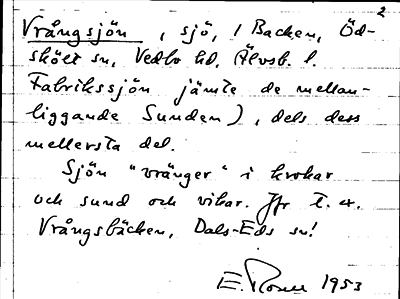 2
Vrångsjön, sjö, 1 Backen, Öd-
skölt sn, Vedbo hd, Älvsb. l.
Fabrikssjön jämte de mellan-
liggande Sunden), dels dess
mellersta del.
Sjön "vränger" i krokar
och sund och vikar. Jfr t. ex.
Vrångsbäcken, Dals-Eds sn!
E. 1953